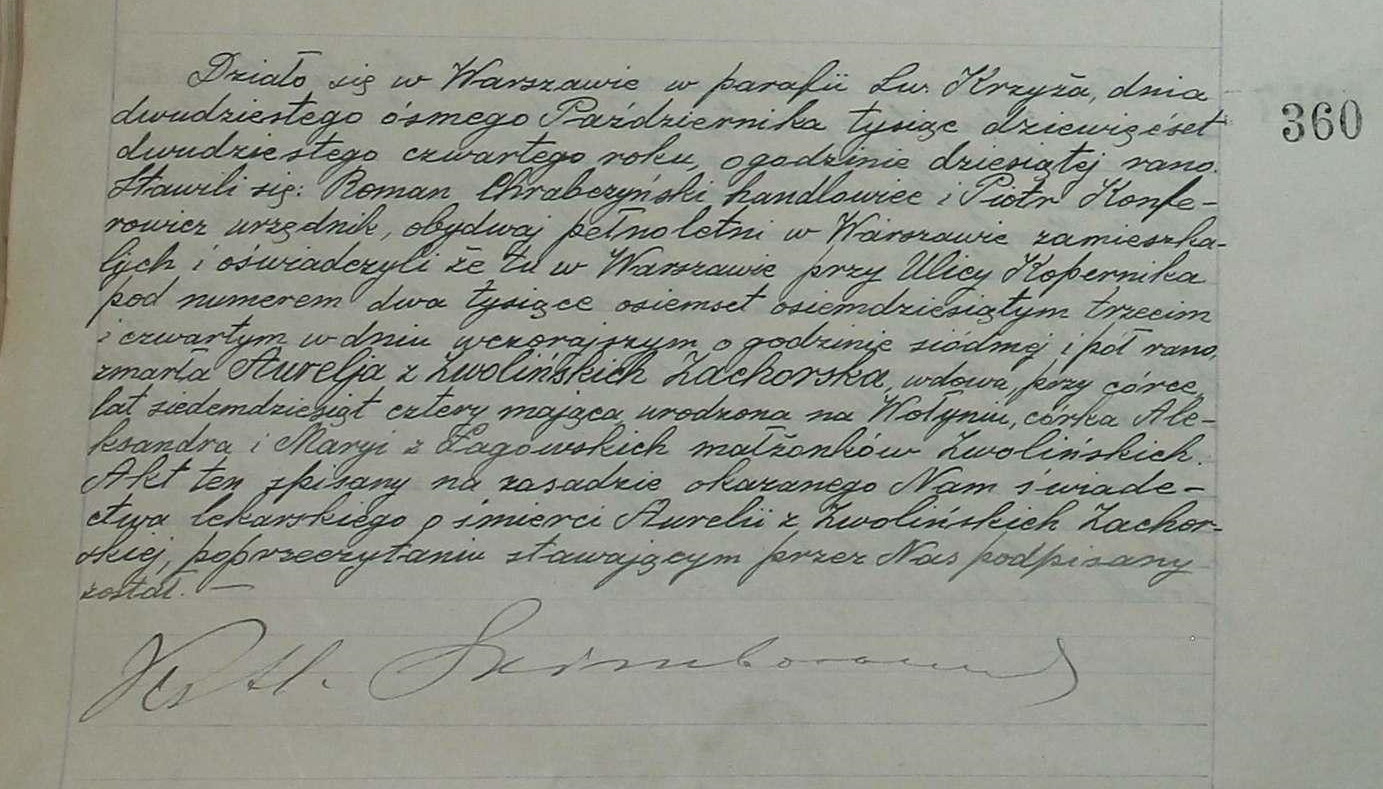 Działo się w Warszawie w parafii Św. Krzyża, dnia
360
dwudziestego ósmego Października tysiąc dziewięćset
dwudziestego czwartego roku, o godzinie dziesiątej rano.
Stawili się: Roman Chrabczyński handlowiec i Piotr Konfe-
rowicz urzędnik, obydwaj pełnoletni w Warszawie zamieszka-
łych i oświadczyli że tu w Warszawie przy Ulicy Kopernika
pod numerem dwa tysiące osiemset osiemdziesiątym trzecim
i czwartym w dniu wczorajszym o godzinie siódmej i pół rano,
zmarła Aurelja z Zwolińskich Zachorska, wdowa, przy córce,
lat siedemdziesiąt cztery mająca urodzona na Wołyniu, córka Ale-
ksandra i Maryi z Łagowskich małżonków Zwolińskich.
Akt ten spisany na zasadzie okazanego Nam świade-
ctwa lekarskiego o śmierci Aurelii z Zwolińskich Zachor-
skiej, po przeczytaniu stawającym przez Nas podpisany
został. —